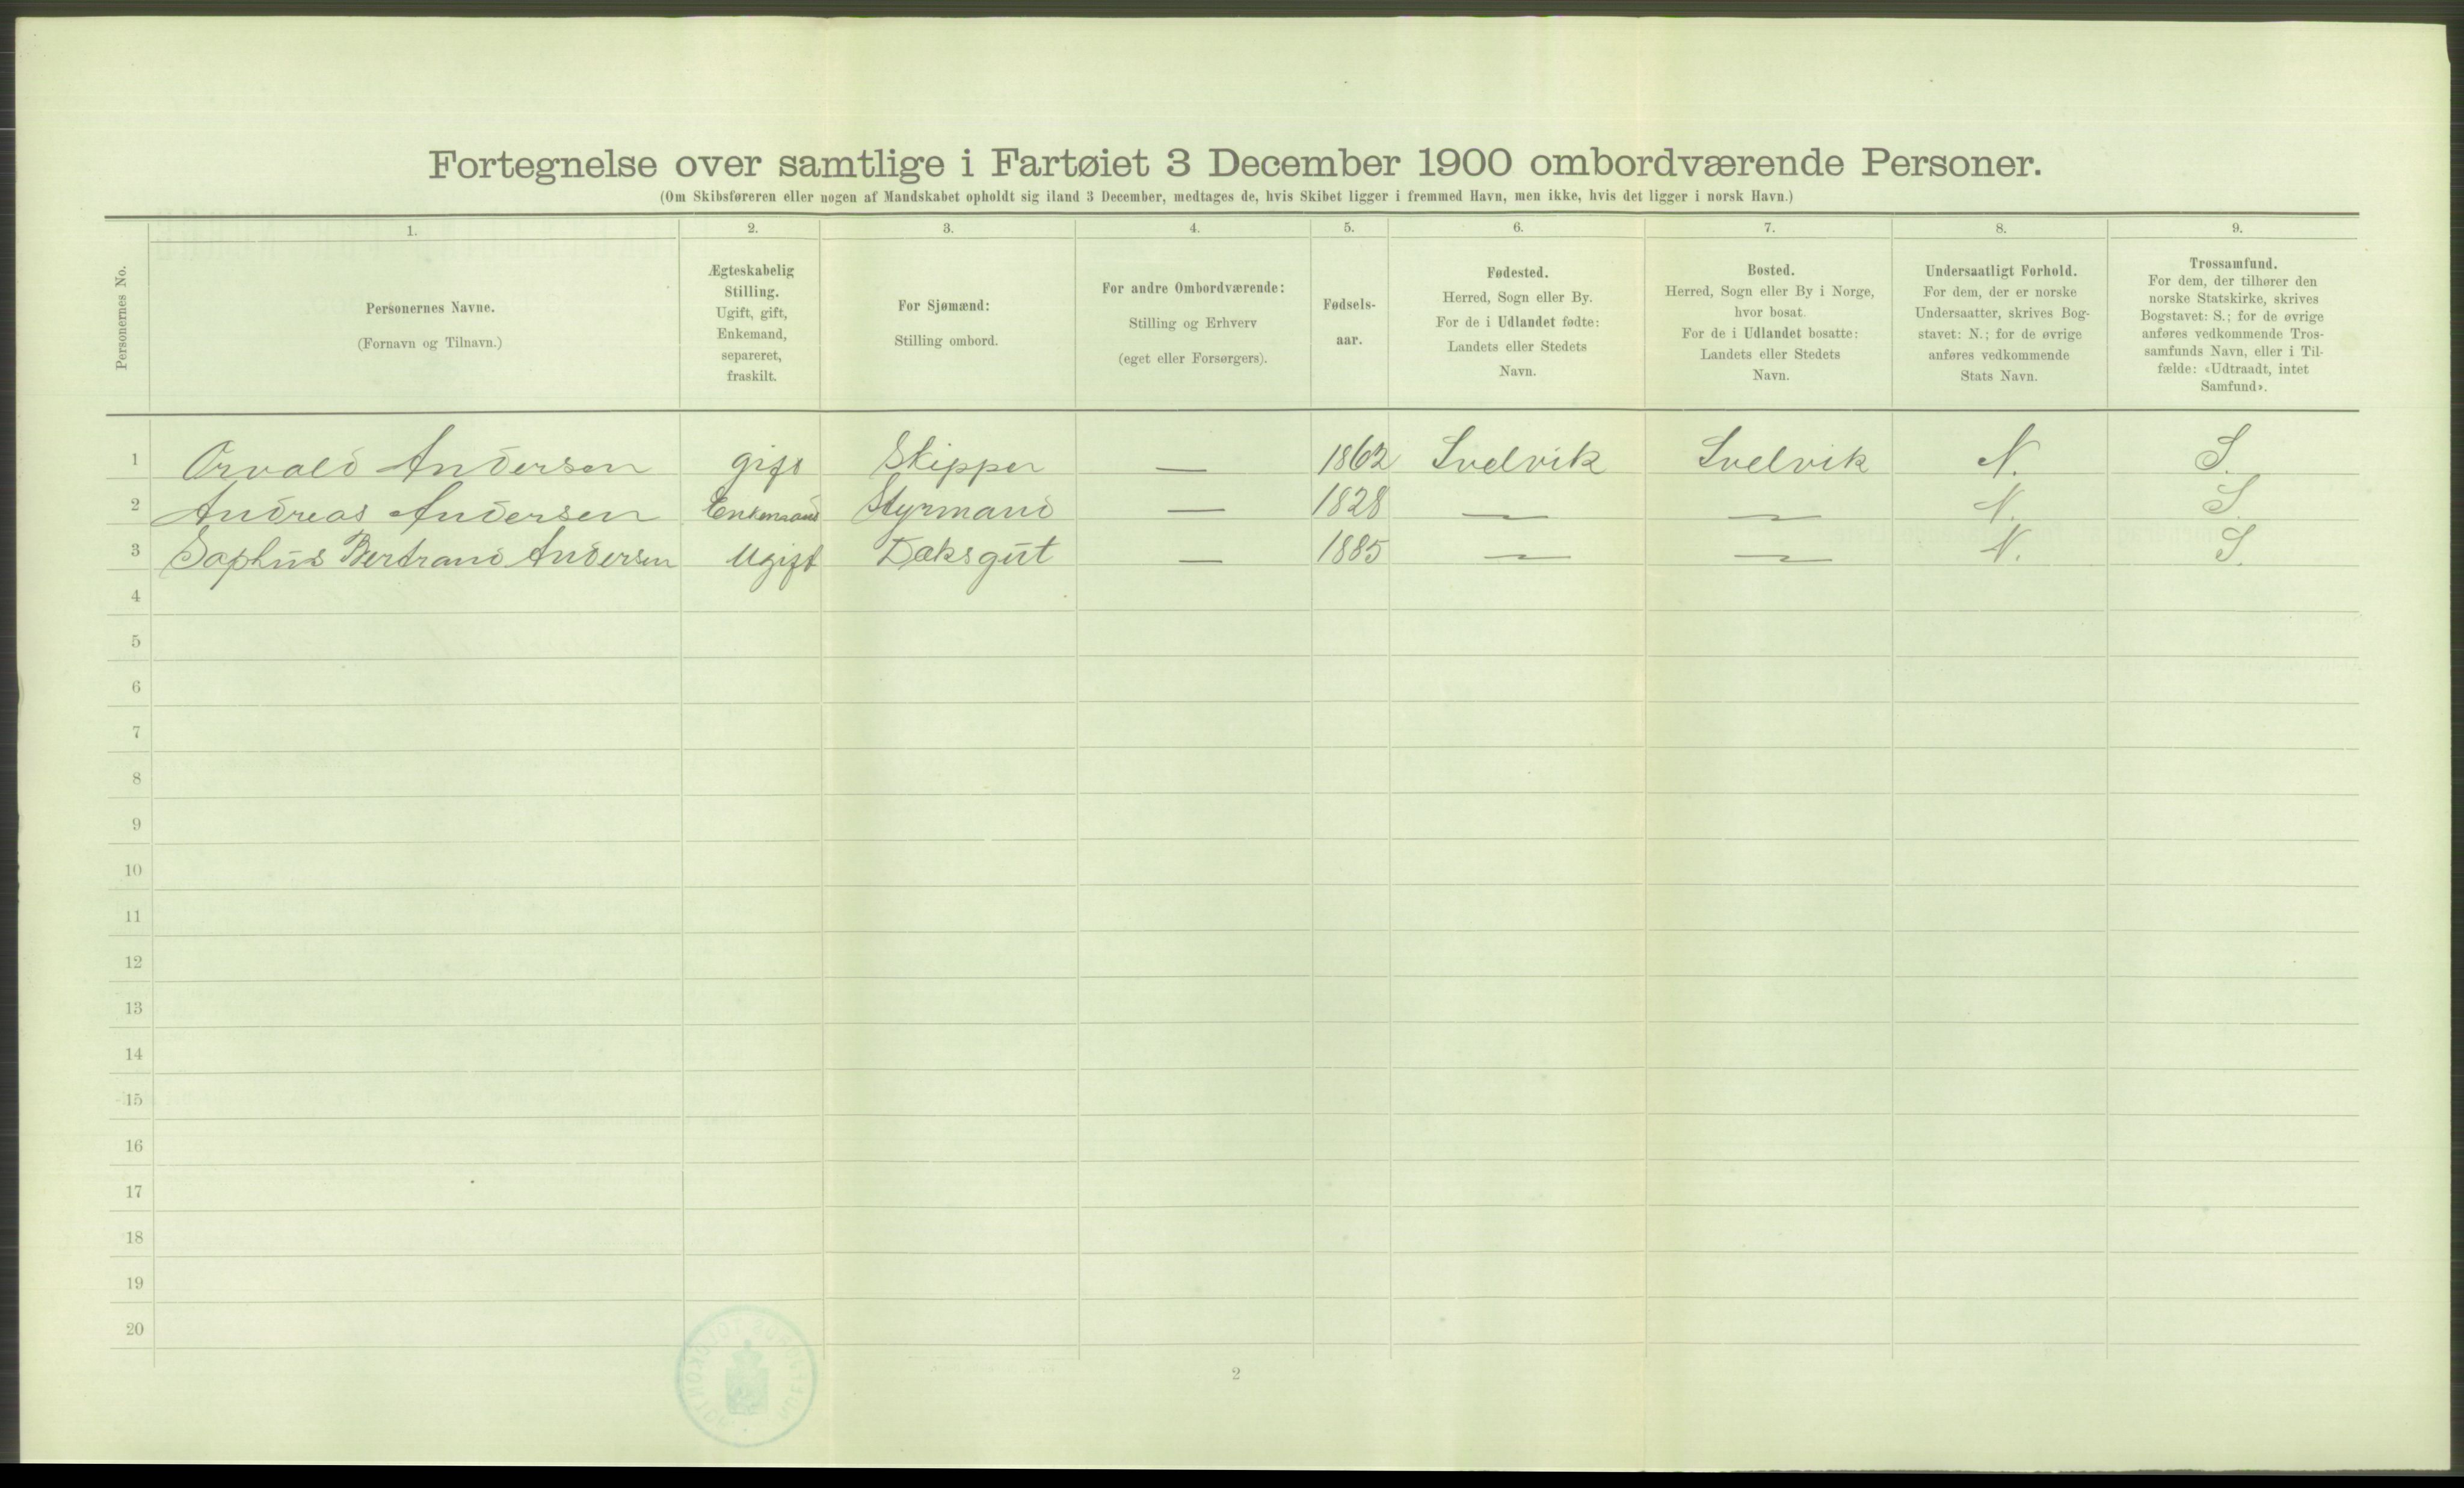 Fortegnelse over samtlige i Fartøiet 3 December 1900 ombordværende Personer.
(Om Skibsføreren eller nogen af Mandskabet opholdt sig iland 3 December, medtages de, hvis Skibet ligger i fremmed Havn, men ikke, hvis det ligger i norsk Havn.)
1. 2. 3. 4. 5. 6. 7. 8. 9.
Personernes No.
Personernes Navne.
(Fornavn og Tilnavn.)
Ægteskabelig
Stilling.
Ugift, gift,
Enkemand,
separeret,
fraskilt.
For Sjømænd:
Stilling ombord.
For andre Ombordværende:
Stilling og Erhverv
(eget eller Forsørgers).
Fødsels-
aar.
Fødested.
Herred, Sogn eller By.
For de i Udlandet fødte:
Landets eller Stedets
Navn.
Bosted.
Herred, Sogn eller By i Norge,
hvor bosat.
For de i Udlandet bosatte:
Landets eller Stedets
Navn.
Undersaatligt Forhold.
For dem, der er norske
Undersaatter, skrives Bog-
stavet: N.; for de øvrige
anføres vedkommende
Stats Navn.
Trossamfund.
For dem, der tilhører den
norske Statskirke, skrives
Bogstavet: S.; for de øvrige
anføres vedkommende Tros-
samfunds Navn, eller i Til-
fælde: «Udtraadt, intet
Samfund».
1 Orvald Andersen gift Skipper — 1862 Svelvik Svelvik N. S.
2 Andreas Andersen Enkemand Styrmand — 1828 — — N. S.
3 Sophus Bertrand Andersen Ugift Dæksgut — 1885 — — N. S.
4
5
6
7
8
9
10
11
12
13
14
15
16
17
18
19
20
2